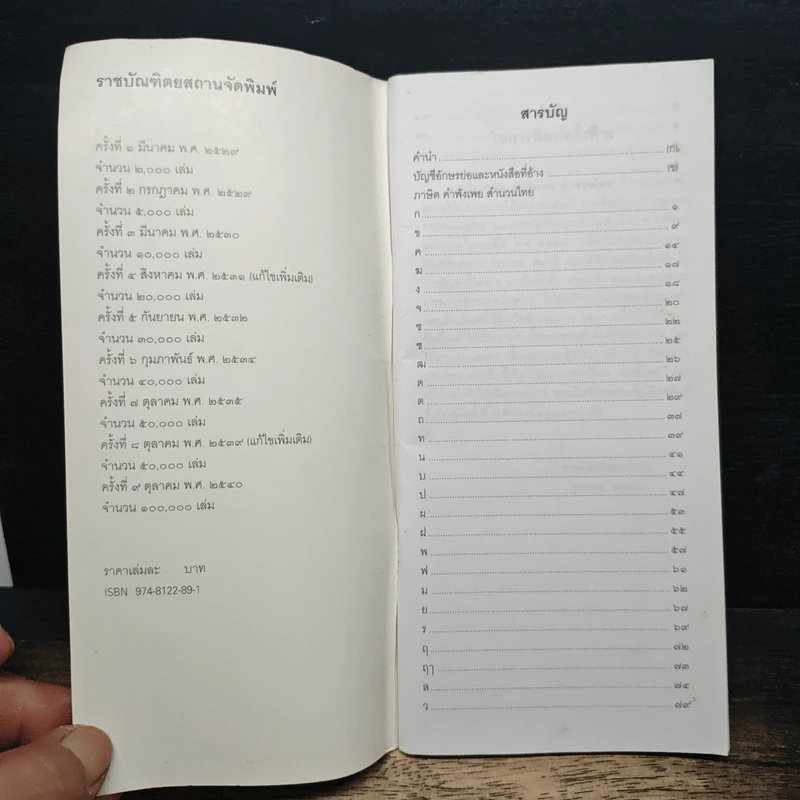 ราชบัณฑิตยสถานจัดพิมพ์
ครั้งที่ ๑ มีนาคม พ.ศ. ๒๕๒๙
จำนวน ๒,๐๐๐ เล่ม
ครั้งที่ ๒ กรกฎาคม พ.ศ. ๒๕๒๙
จำนวน ๕,๐๐๐ เล่ม
ครั้งที่ ๓ มีนาคม พ.ศ. ๒๕๓๐
จำนวน ๑๐,๐๐๐ เล่ม
ครั้งที่ ๔ สิงหาคม พ.ศ. ๒๕๓๑ (แก้ไขเพิ่มเติม)
จำนวน ๒๐,๐๐๐ เล่ม
ครั้งที่ ๕ กันยายน พ.ศ. ๒๕๓๒
จำนวน ๓๐,๐๐๐ เล่ม
ครั้งที่ ๖ กุมภาพันธ์ พ.ศ. ๒๕๓๔
จำนวน ๔๐,๐๐๐ เล่ม
ครั้งที่ ๗ ตุลาคม พ.ศ. ๒๕๓๕
จำนวน ๕๐,๐๐๐ เล่ม
ครั้งที่ ๘ ตุลาคม พ.ศ. ๒๕๓๙ (แก้ไขเพิ่มเติม)
จำนวน ๕๐,๐๐๐ เล่ม
ครั้งที่ ๙ ตุลาคม พ.ศ. ๒๕๔๐
จำนวน ๑๐๐,๐๐๐ เล่ม
ราคาเล่มละ บาท
ISBN 974-8122-89-1
สารบัญ
คำนำ (ก)
บัญชีอักษรย่อและหนังสือที่อ้าง (ข)
ภาษิต คำพังเพย สำนวนไทย
ก ๑
ข ๙
ค ๑๔
ฆ ๑๗
ง ๑๘
จ ๒๐
ช ๒๒
ซ ๒๕
ฒ ๒๖
ด ๒๗
ต ๒๙
ถ ๓๗
ท ๓๙
น ๔๑
บ ๔๔
ป ๔๗
ผ ๕๓
ฝ ๕๕
พ ๕๗
ฟ ๖๑
ม ๖๒
ย ๖๗
ร ๖๙
ฤ ๗๒
ฤๅ ๗๓
ล ๗๔
ว ๗๙